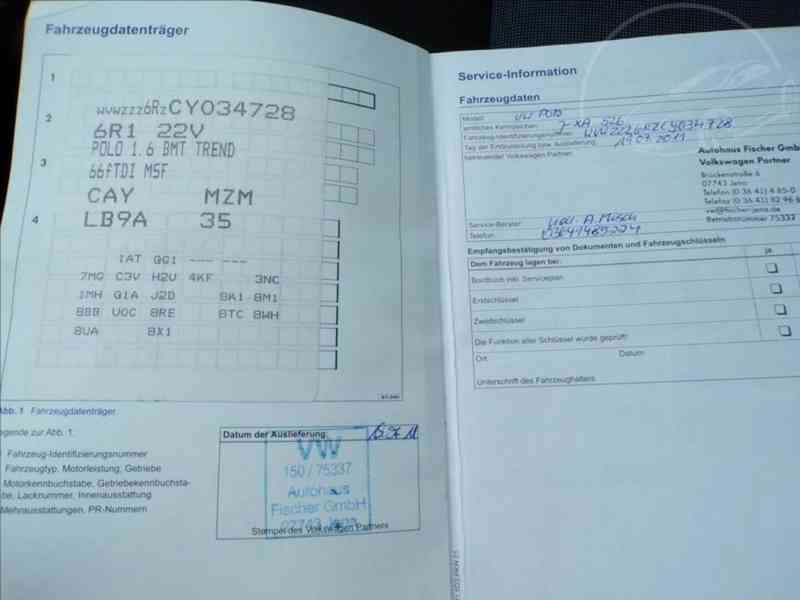 Fahrzeugdatenträger
1
WVWZZZ6RZCY034728
2
6R1 22V
POLO 1.6 BMT TREND
3
66fTDI M5F
CAY MZM
4
LB9A 35
1AT GG1 --- ---
7MG C3V H2U 4KF 3NC
1MH G1A J2D 8K1 8M1
8BB U0C 8RE 8TC 8WH
8UA 8X1
Abb. 1 Fahrzeugdatenträger
egende zur Abb. 1:
Fahrzeug-Identifizierungsnummer
Fahrzeugtyp, Motorleistung, Getriebe
Motorkennbuchstabe, Getriebekennbuchsta-
be, Lacknummer, Innenausstattung
Mehrausstattungen, PR-Nummern
Datum der Auslieferung:
VW
150 / 75337
Autohaus
Fischer GmbH
07743 Jena
Stempel des Volkswagen Partners
Service-Information
Fahrzeugdaten
Modell: VW POLO
amtliches Kennzeichen: J-XA 526
Fahrzeug-Identifizierungsnummer: WVWZZZ6RZCY034728
Tag der Erstzulassung bzw. Auslieferung: 19.07.2011
betreuender Volkswagen Partner:
Autohaus Fischer GmbH
Volkswagen Partner
Brückenstraße 6
07743 Jena
Telefon (0 36 41) 4 85-0
Telefax (0 36 41) 82 96 8
vw@fischer-jena.de
Betriebsnummer 75337
Service-Berater:
Telefon:
Empfangsbestätigung von Dokumenten und Fahrzeugschlüsseln
Dem Fahrzeug lagen bei: ja
Bordbuch inkl. Serviceplan
Erstschlüssel
Zweitschlüssel
Die Funktion aller Schlüssel wurde geprüft
Ort Datum
Unterschrift des Fahrzeughalters